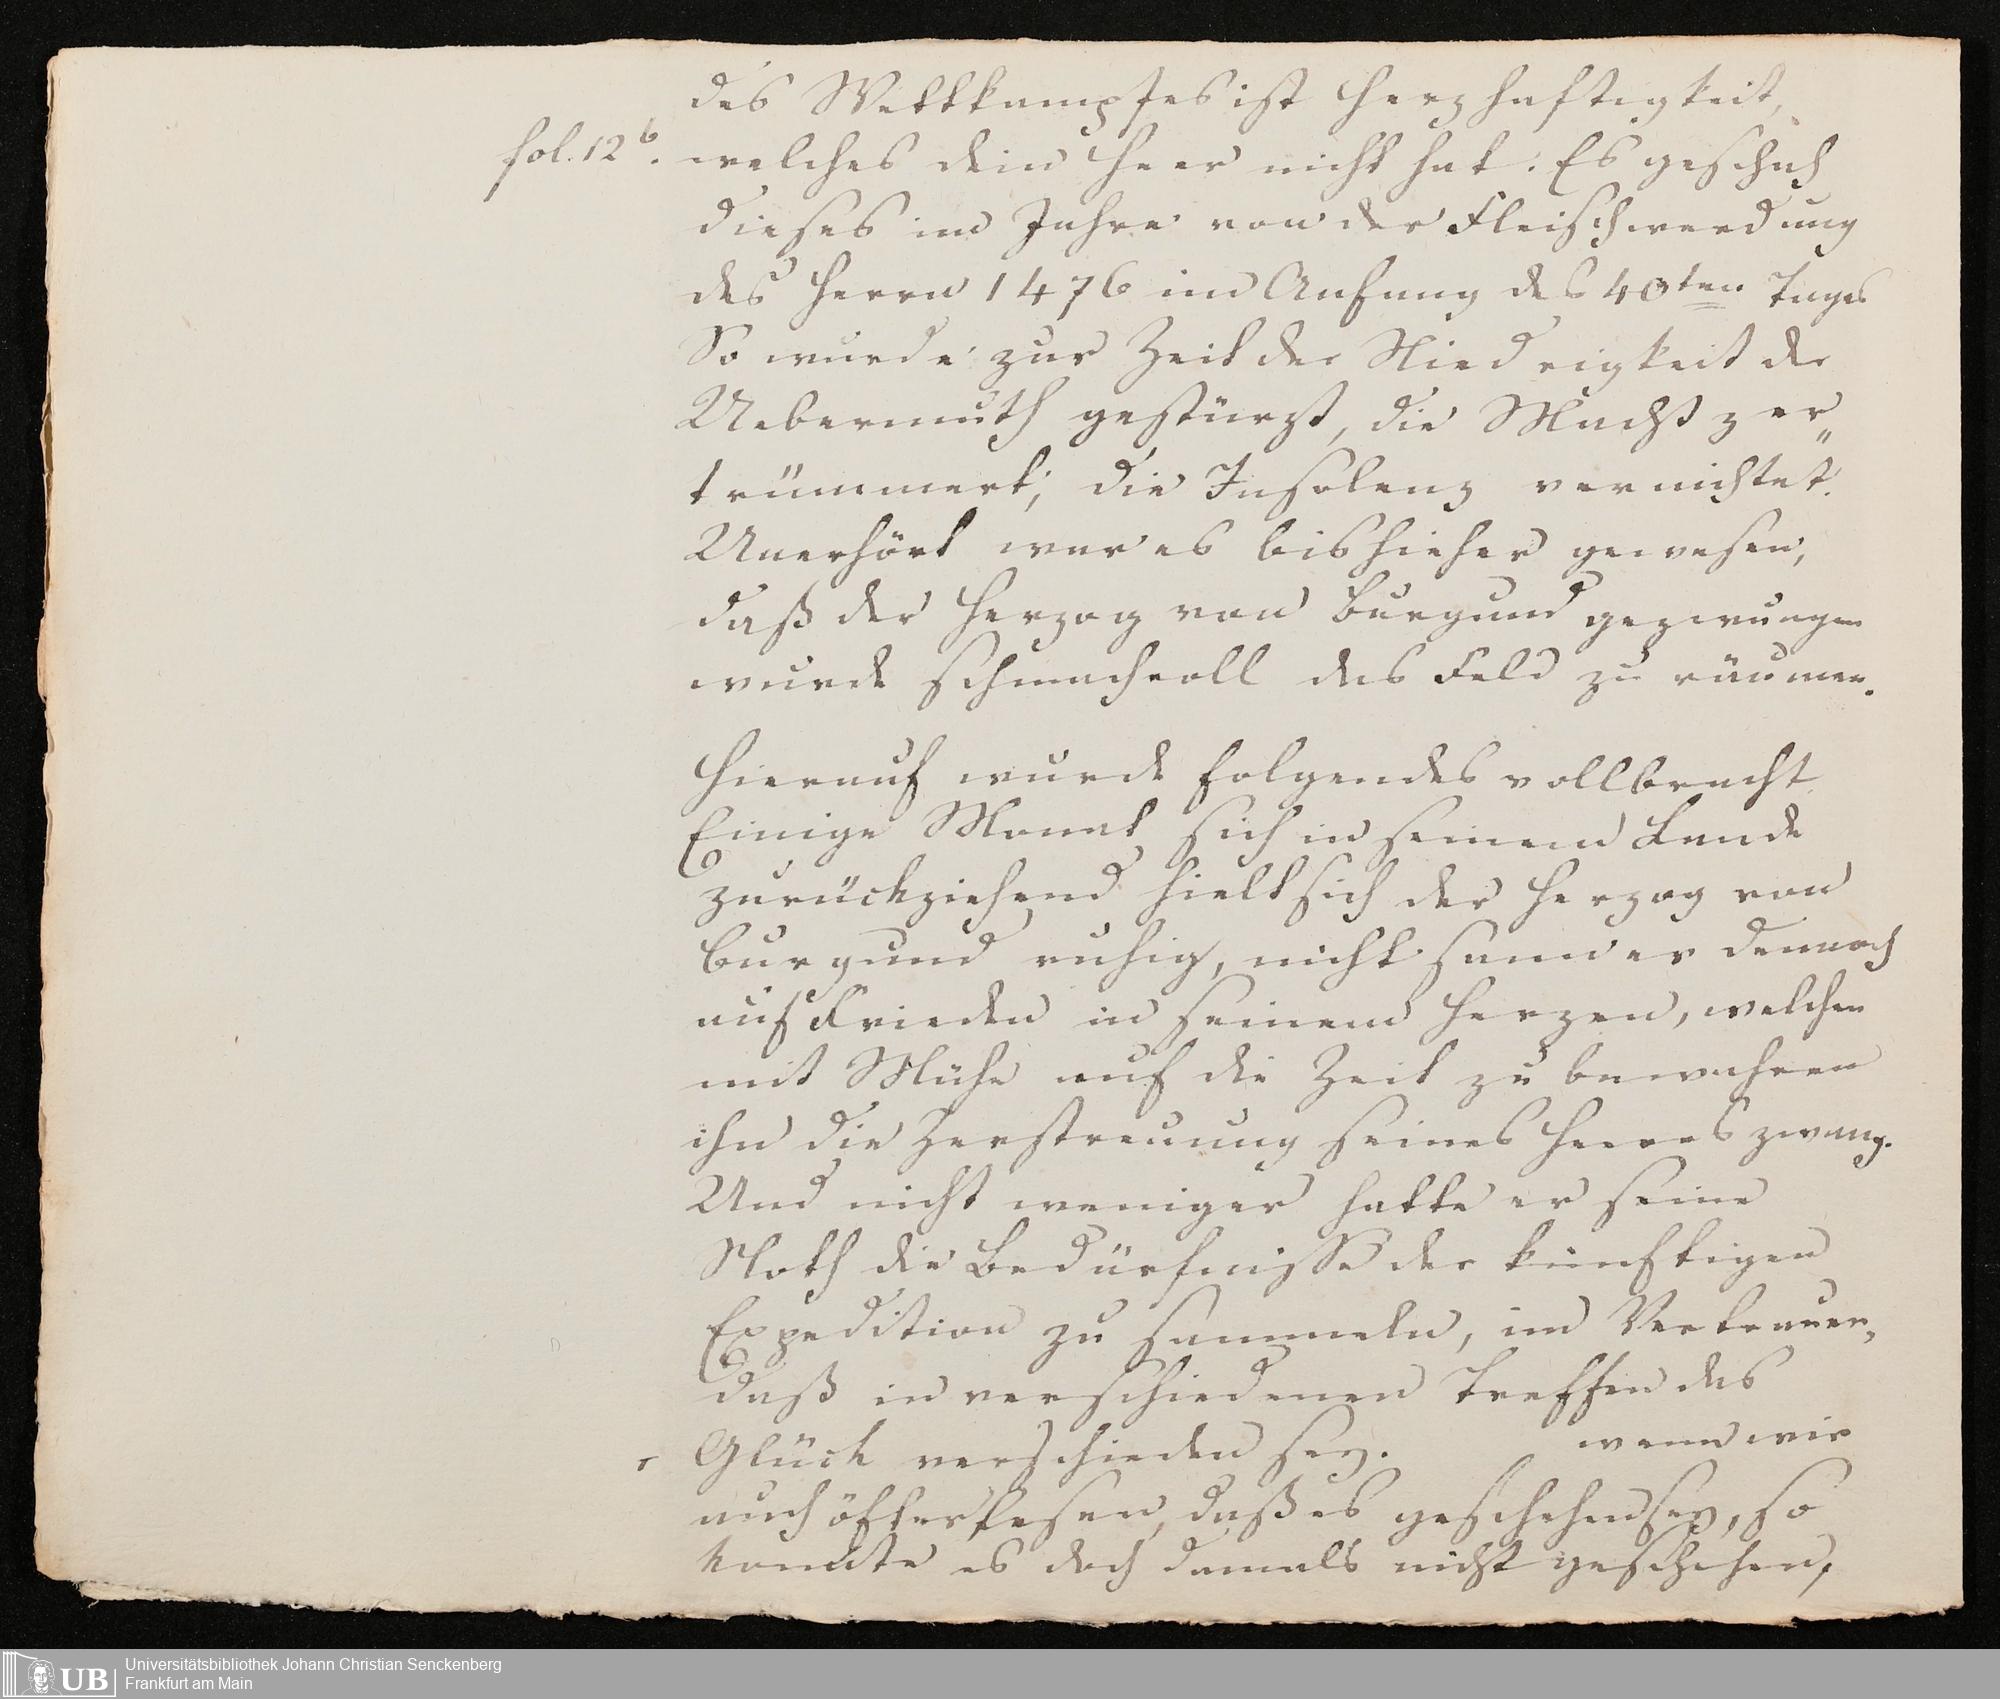 des Wettkampfes ist Herzhaftigkeit,
fol. 12 b. welches dein Heer nicht hat. Es geschah
dieses im Jahre von der Fleischwerdung
des Herrn 1476 im Anfang des 40ten Tages
So wurde zur Zeit der Niedrigkeit der
Uebermuth gestürzt, die Macht zer„
trümmert, die Insolenz vernichtet.
Unerhört war es bishieher gewesen,
daß der Herzog von Burgund gezwungen
wurde schmachvoll das Feld zu räumen.
Hierauf wurde folgendes vollbracht
Einige Monat sich in seinem Lande
zurückziehend hielt sich der Herzog von
Burgund ruhig, nicht sann er dennoch
auf Frieden in seinem Herzen, welchen
mit Mühe auf die Zeit zu bewahren
ihn die Zerstreuung seines Heeres zwang.
Und nicht weniger hatte er seine
Noth die Bedürfnisse der künftigen
Expedition zu sammeln, im Vertrauen,
daß in verschiedenen Treffen das
Glück verschieden sey. wenn wir
auch öfter lesen, daß es geschehen sey, so
konnte es doch damals nicht geschehen,
Universitätsbibliothek Johann Christian Senckenberg
UB Frankfurt am Main